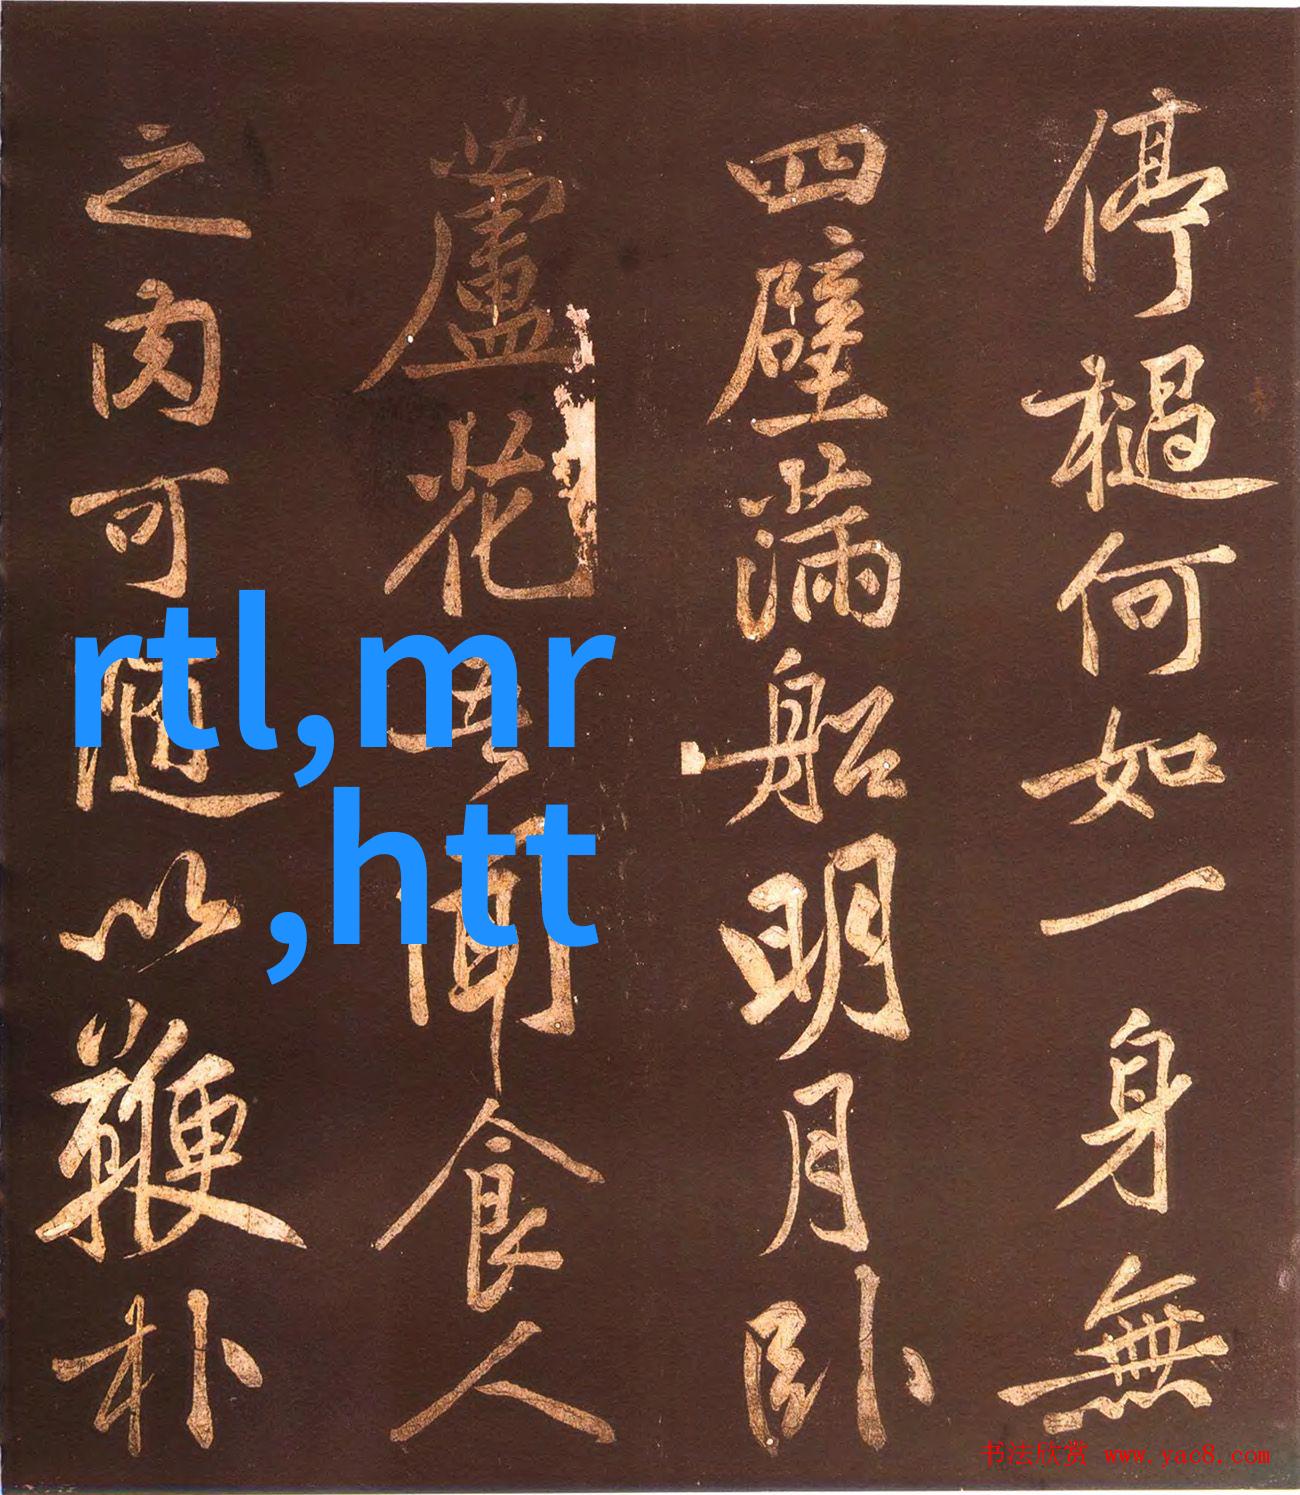 停檛何如一身無
四壁滿船明月卧
蘆花吾聞食人
之肉可隨以鞭朴
rtl,mr
,htt
书法欣赏 www.yac8.com